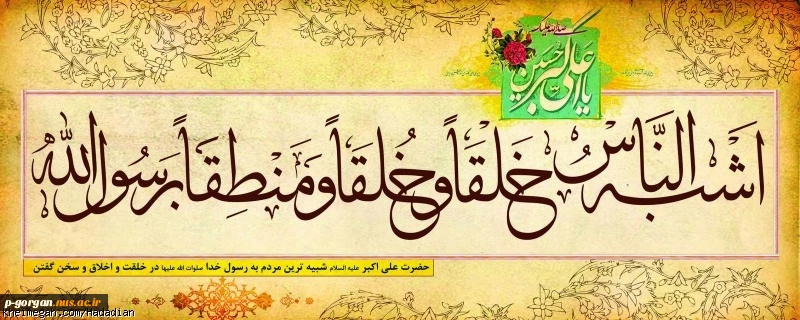 یا علی اکبر حسین
اَشبَه النَّاسِ خَلقَاً وَ خُلقَاً وَ مَنطِقَاً بِرَسُول الله
حضرت علی اکبر علیه السلام شبیه ترین مردم به رسول خدا صلوات الله علیها در خلقت و اخلاق و سخن گفتن
p-gorgan.nus.ac.ir
kheimegah.com/Hadadian